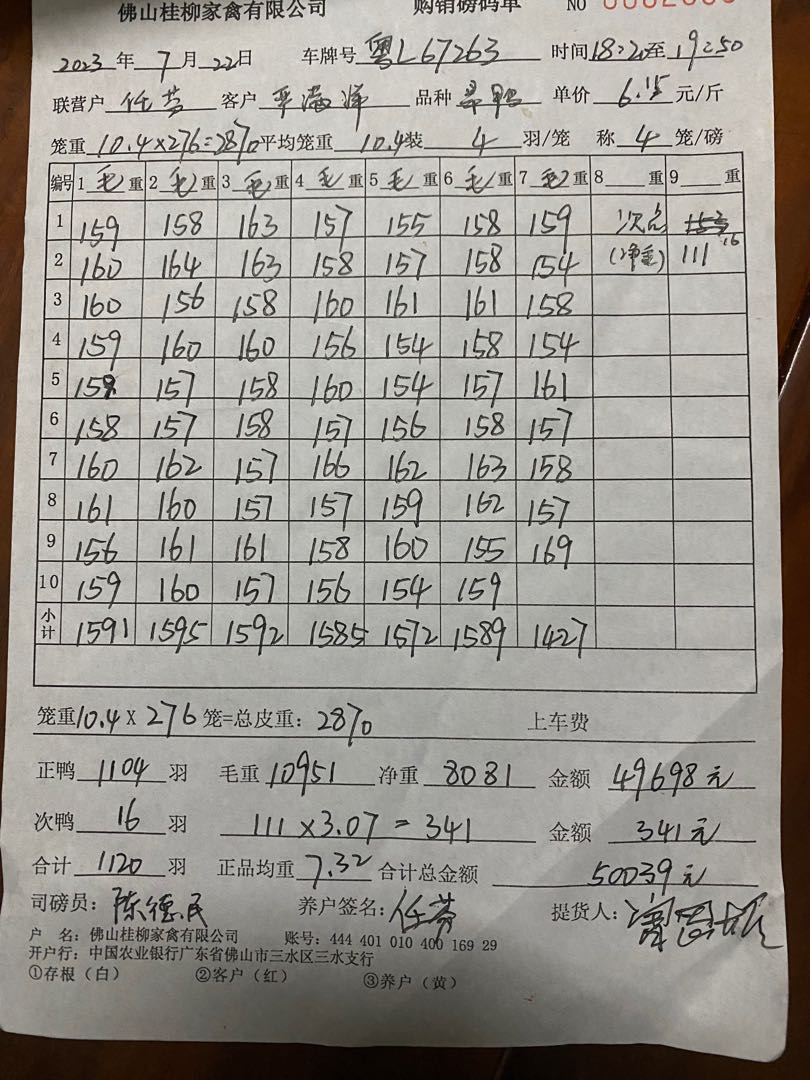 佛山桂柳家禽有限公司 购销磅码单 NO
2023 年 7 月 22 日 车牌号 粤L67263 时间 18:20 至 19:50
联营户 任芬 客户 品种 单价 6.15 元/斤
笼重 10.4×276=2870 平均笼重 10.4 装 4 羽/笼 称 4 笼/磅
编号 1 毛 重 2 毛 重 3 毛 重 4 毛 重 5 毛 重 6 毛 重 7 毛 重 8 重 9 重
1 159 158 163 157 155 158 159 次品 153
2 160 164 163 158 157 158 154 (净重) 111 16
3 160 156 158 160 161 161 158
4 159 160 160 156 154 158 154
5 159 157 158 160 154 157 161
6 158 157 158 157 156 158 157
7 160 162 157 166 162 163 158
8 161 160 157 157 159 162 157
9 156 161 161 158 160 155 169
10 159 160 157 156 154 159
小计 1591 1595 1592 1585 1572 1589 1427
笼重 10.4 X 276 笼=总皮重: 2870 上车费
正鸭 1104 羽 毛重 10951 净重 8081 金额 49698 元
次鸭 16 羽 111 × 3.07 = 341 金额 341 元
合计 1120 羽 正品均重 7.32 合计总金额 50039 元
司磅员: 陈德民 养户签名: 任芬 提货人:
户 名: 佛山桂柳家禽有限公司 账号: 444 401 010 400 169 29
开户行: 中国农业银行广东省佛山市三水区三水支行
①存根（白） ②客户（红） ③养户（黄）